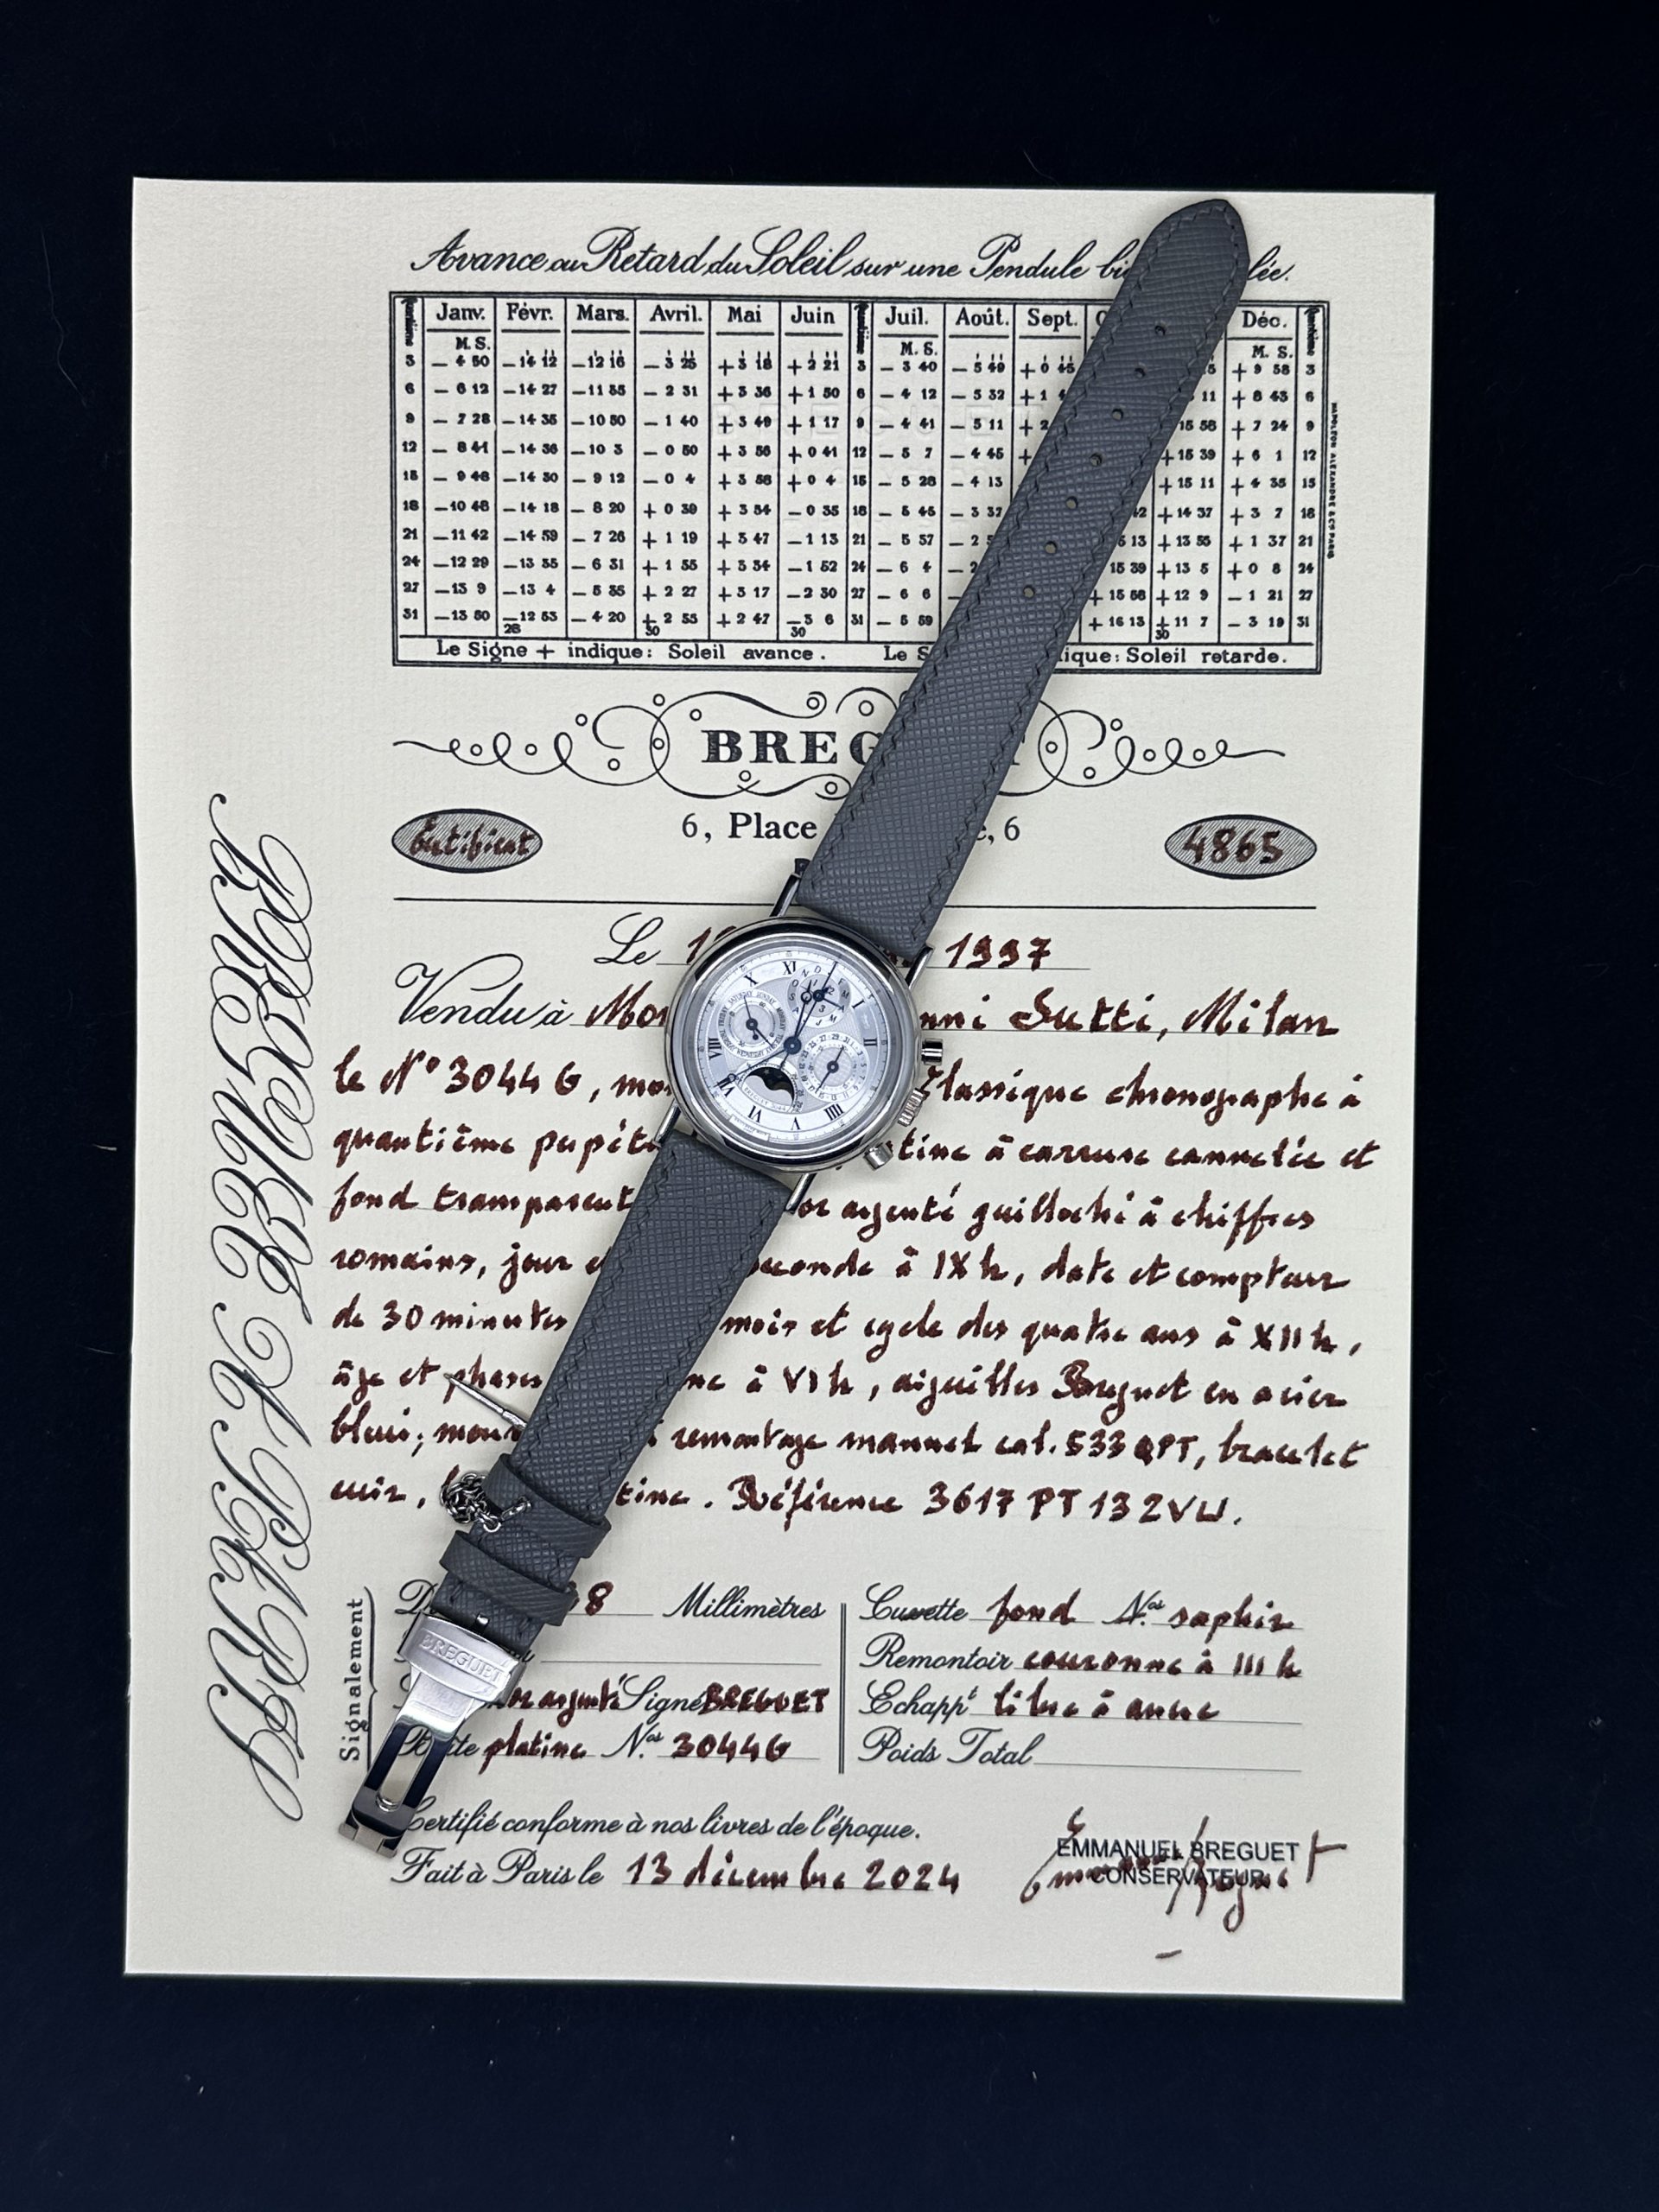 Avance ou Retard du Soleil sur une Pendule bi lée.
Quantième Janv. Févr. Mars. Avril. Mai Juin Quantième Juil. Août. Sept. Déc. Quantième
M. S. M. S. M. S.
3 — 4 50 — 14 12 — 12 16 — 3 25 + 3 18 + 2 21 3 — 3 40 — 5 49 + 0 45 + 9 58 3
6 — 6 12 — 14 27 — 11 35 — 2 31 + 3 36 + 1 50 6 — 4 12 — 5 32 + 1 11 + 8 43 6
9 — 7 28 — 14 35 — 10 50 — 1 40 + 3 49 + 1 17 9 — 4 41 — 5 11 + 2 15 58 + 7 24 9
12 — 8 41 — 14 36 — 10 3 — 0 50 + 3 56 + 0 41 12 — 5 7 — 4 45 + + 15 39 + 6 1 12
15 — 9 48 — 14 30 — 9 12 — 0 4 + 3 58 + 0 4 15 — 5 28 — 4 13 + 15 11 + 4 35 15
18 — 10 48 — 14 18 — 8 20 + 0 39 + 3 54 — 0 35 18 — 5 45 — 3 37 + 14 37 + 3 7 18
21 — 11 42 — 14 59 — 7 26 + 1 19 + 3 47 — 1 13 21 — 5 57 — 2 13 + 13 55 + 1 37 21
24 — 12 29 — 13 35 — 6 31 + 1 55 + 3 34 — 1 52 24 — 6 4 — 2 15 39 + 13 5 + 0 8 24
27 — 13 9 — 13 4 — 5 35 + 2 27 + 3 17 — 2 30 27 — 6 6 — + 15 58 + 12 9 — 1 21 27
31 — 13 50 — 12 53 — 4 20 + 2 55 + 2 47 — 3 6 31 — 5 59 + 16 13 + 11 7 — 3 19 31
28 30 30 30
Le Signe + indique: Soleil avance. Le S ique: Soleil retarde.
NAPOLEON ALEXANDRE & Cº PARIS
BREG T
6, Place e, 6
Certificat
4865
BREGUET
BREGUET À PARIS
Le 1 1997
Vendu à Mon nni Sutti, Milan
le N° 3044 G, mon Classique chronographe à
quantième perpét tine à carrure cannelée et
fond transparent or argenté guilloché à chiffres
romains, jour e seconde à IX h, date et compteur
de 30 minutes mois et cycle des quatre ans à XII h,
âge et phases ne à VI h, aiguilles Breguet en acier
bleui; mou remontage manuel cal. 533 QPT, bracelet
cuir, tine. Référence 3617 PT 13 2VW.
Signalement
D 8 Millimètres
or argenté Signé BREGUET
Boîte platine Nos 3044G
Cuvette fond Nos saphir
Remontoir couronne à III h
Echappt libre à ancre
Poids Total
BREGUET
Certifié conforme à nos livres de l'époque.
Fait à Paris le 13 décembre 2024
EMMANUEL BREGUET
CONSERVATEUR